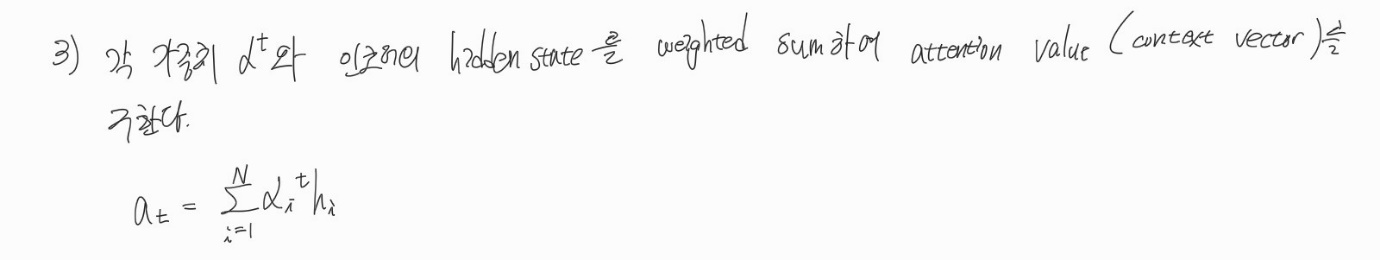 3) 각 가중치 α^t와 인코더의 hidden state을 weighted sum하여 attention value (context vector)을
구한다.
a_t = \sum_{i=1}^{N} α_i^t h_i